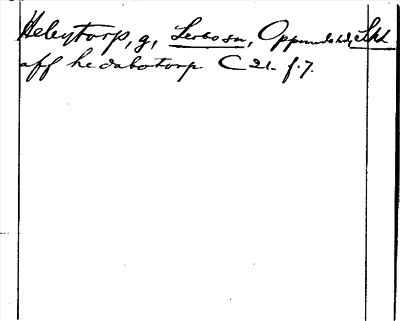 Hebytorp, g, Lerbo sn, Oppunda hd, Skd
aff hedabotorp C 21. f. 7.